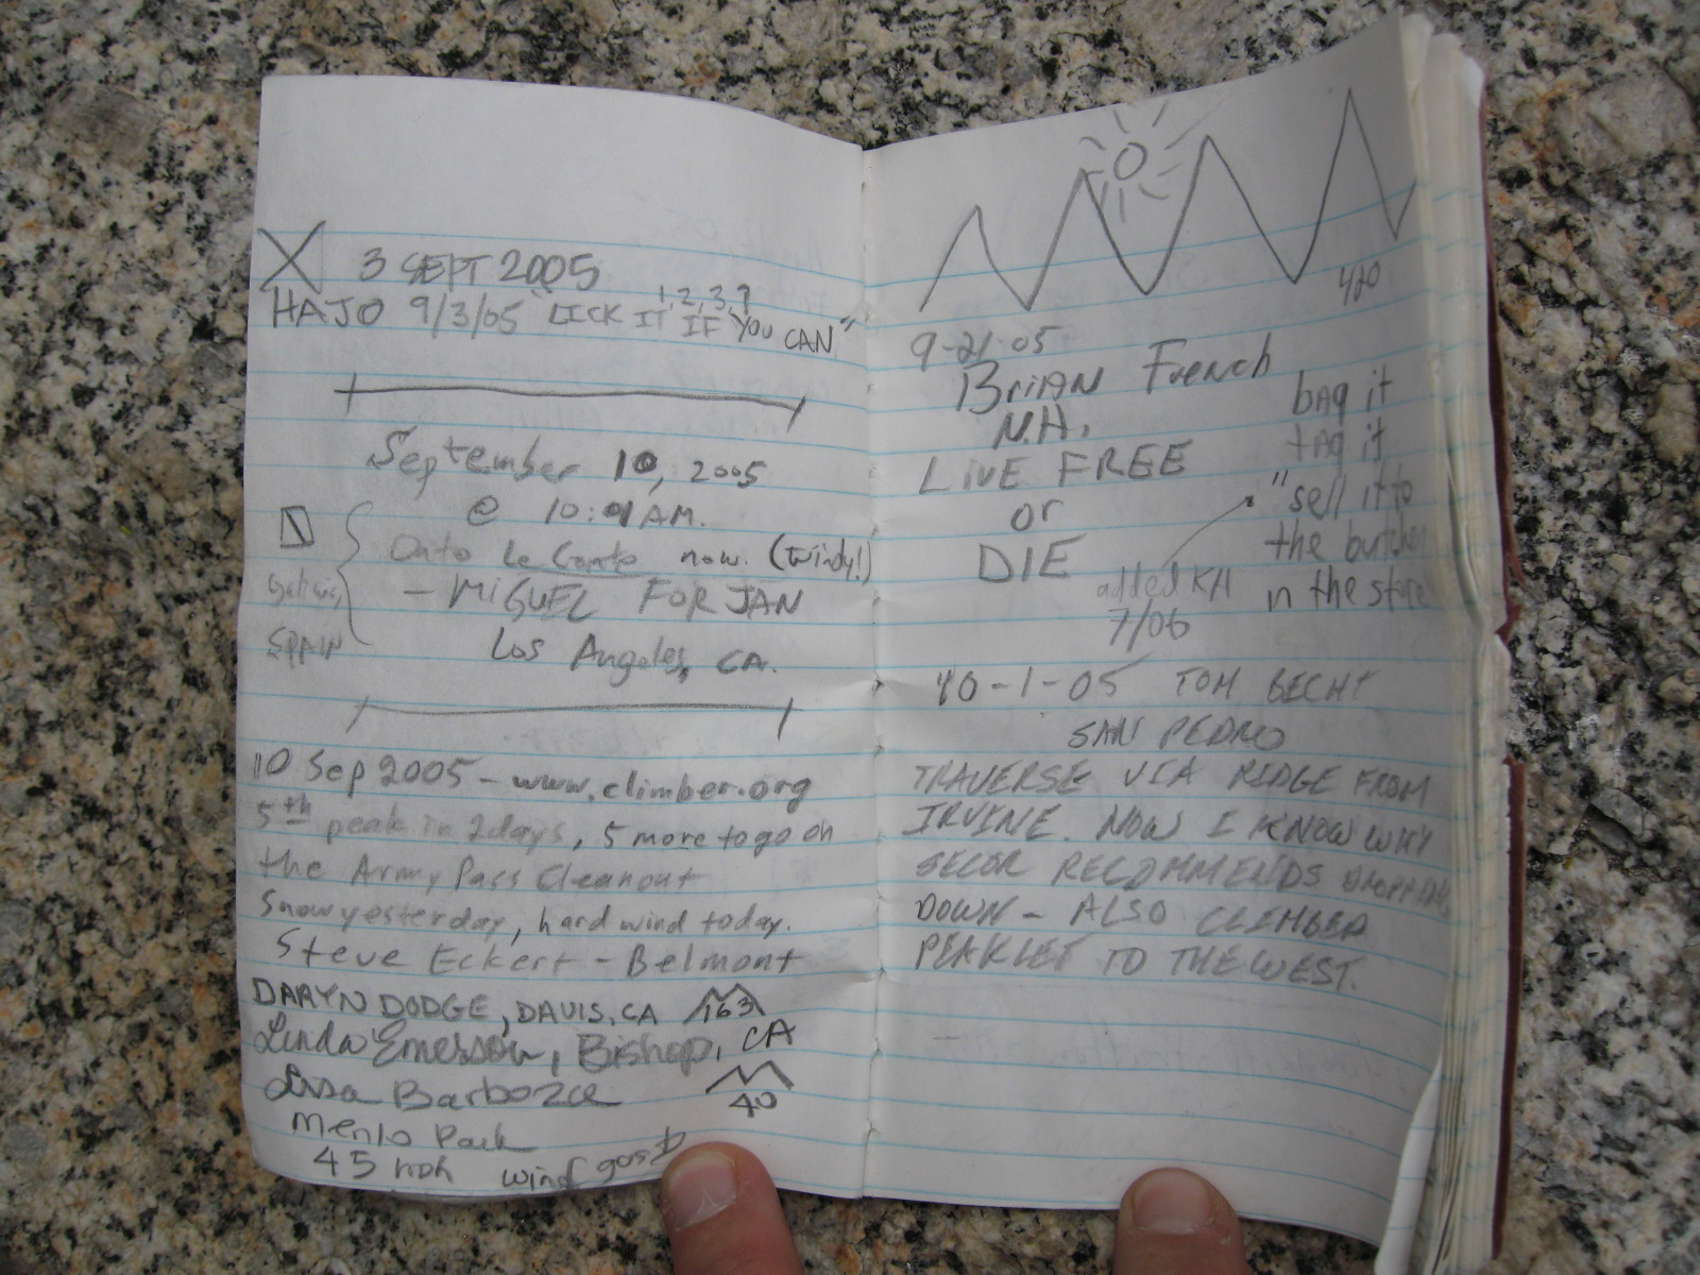 3 SEPT 2005
1, 2, 3, ?
HAJO 9/3/05 "LICK IT IF YOU CAN"
September 10, 2005
@ 10:01 AM.
Onto Le Conte now. (Windy!)
- MIGUEL FORJAN
SPAIN
Los Angeles, CA.
10 Sep 2005 - www.climber.org
5th peak in 2 days, 5 more to go on
the Army Pass Cleanout
Snow yesterday, hard wind today.
Steve Eckert - Belmont
DARYN DODGE, DAVIS, CA 163
Linda Emerson, Bishop, CA
Lisa Barboza
40
Menlo Park
45 mph wind gusts
420
9-21-05
Brian French
N.H.
LIVE FREE
or
DIE
bag it
tag it
"sell it to
the butcher
in the store
added KH
7/06
10-1-05 TOM BECHT
SAN PEDRO
TRAVERSE VIA RIDGE FROM
IRVINE. NOW I KNOW WHY
SECOR RECOMMENDS DROPPING
DOWN - ALSO CLIMBED
PEAKLET TO THE WEST.